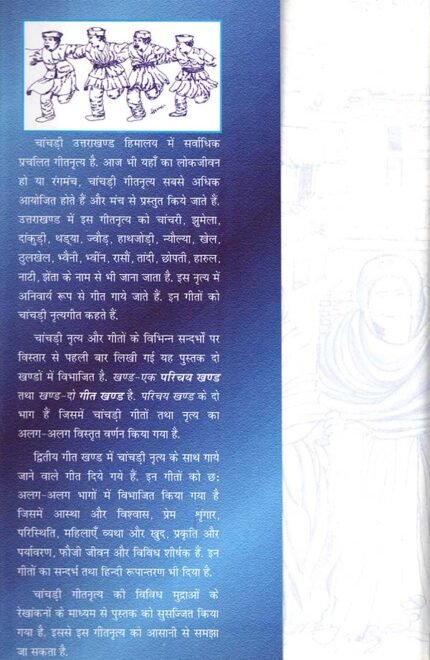 चांचड़ी उत्तराखण्ड हिमालय में सर्वाधिक
प्रचलित गीतनृत्य है. आज भी यहाँ का लोकजीवन
हो या रंगमंच, चांचड़ी गीतनृत्य सबसे अधिक
आयोजित होते हैं और मंच से प्रस्तुत किये जाते हैं.
उत्तराखण्ड में इस गीतनृत्य को चांचरी, झुमेला,
दांकुड़ी, थड़्या, ज्वौड़, हाथजोड़ी, न्यौल्या, खेल,
ठुलखेल, भ्वैनी, भ्वींन, रासौ, तांदी, छोपती, हारुल,
नाटी, झेंता के नाम से भी जाना जाता है. इस नृत्य में
अनिवार्य रूप से गीत गाये जाते हैं. इन गीतों को
चांचड़ी नृत्यगीत कहते हैं.
चांचड़ी नृत्य और गीतों के विभिन्न सन्दर्भों पर
विस्तार से पहली बार लिखी गई यह पुस्तक दो
खण्डों में विभाजित है. खण्ड-एक परिचय खण्ड
तथा खण्ड-दो गीत खण्ड है. परिचय खण्ड के दो
भाग हैं जिसमें चांचड़ी गीतों तथा नृत्य का
अलग-अलग विस्तृत वर्णन किया गया है.
द्वितीय गीत खण्ड में चांचड़ी नृत्य के साथ गाये
जाने वाले गीत दिये गये हैं. इन गीतों को छः
अलग-अलग भागों में विभाजित किया गया है
जिसमें आस्था और विश्वास, प्रेम शृंगार,
परिस्थिति, महिलाएँ व्यथा और खुद, प्रकृति और
पर्यावरण, फौजी जीवन और विविध शीर्षक हैं. इन
गीतों का सन्दर्भ तथा हिन्दी रूपान्तरण भी दिया है.
चांचड़ी गीतनृत्य की विविध मुद्राओं के
रेखांकनों के माध्यम से पुस्तक को सुसज्जित किया
गया है. इससे इस गीतनृत्य को आसानी से समझा
जा सकता है.